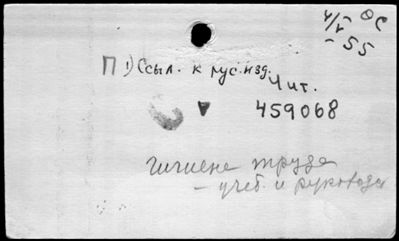 ОС
4/V - 55
П 1) Ссыл. к рус. изд.
Чит.
459068
гигиене труда
- учеб. и руковода